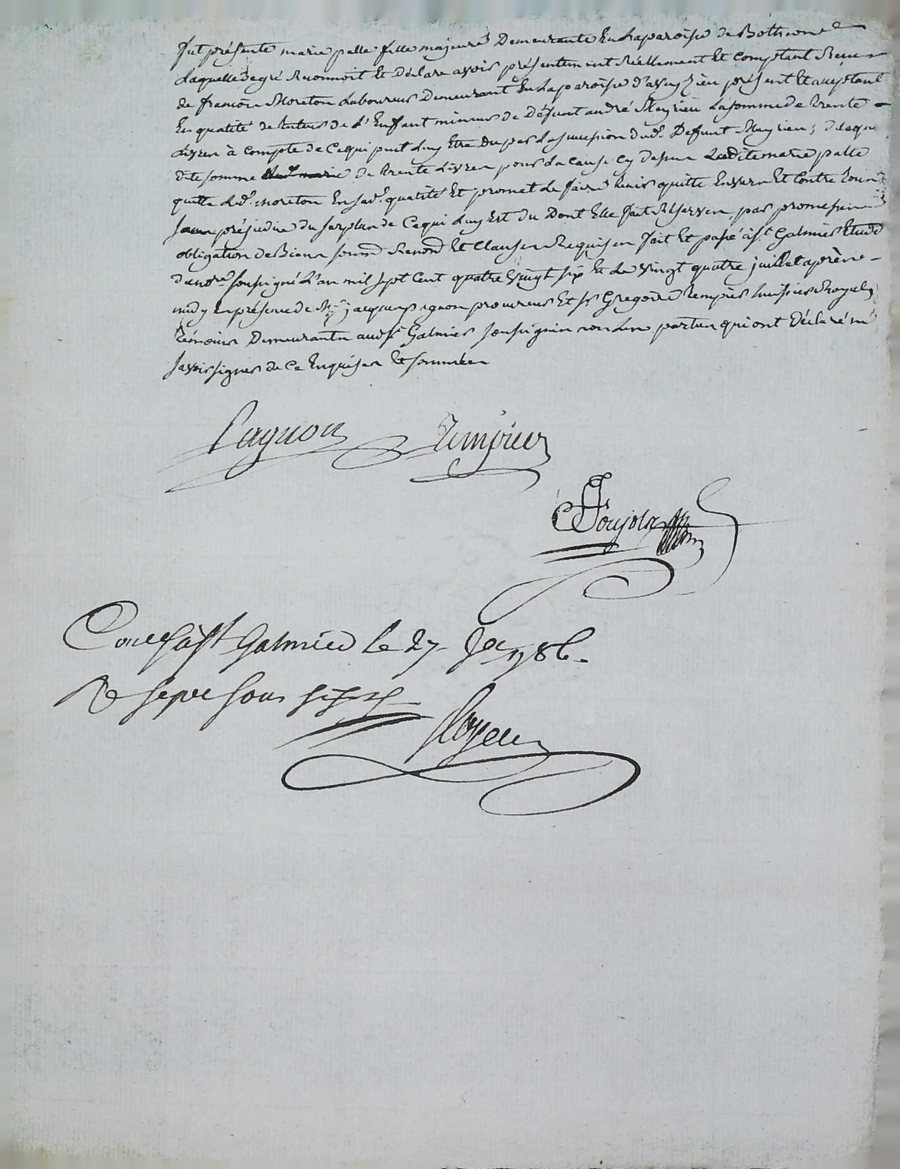 fut présente marie palle fille majeure Demeurante En la paroise de Bothéon
Laquelle de gré Reconnoit Et Déclare avoir présentement Réellement Et Comptant Receu
de francois Moreton Laboureur Demeurant En la paroise d'aveyzieu présent Et acceptant
En qualité de tuteur de L'Enffant mineur de Défunt andré Meyrieu La somme de trente
Livres à Compte de Ce qui peut Luy Etre Du par La succession dud. Défunt Meyrieu; de laque
dite somme de trente Livres pour La cause cy dessus Laditte marie palle
quitte Led. moreton En sad. qualité Et promet Le faire tenir quitte Envers Et Contre tous
sans préjudice du surplus de Ce qui Luy Est du Dont Elle fait Réserves, par promesses
obligation de Biens soumd Renond Et Clauses Requises fait Et passé à st Galmier Etude
du not.re soussigné L'an mil sept Cent quatre Vingt six Et Le Vingt quatre juillet après
midy En présence de Me jacques pagnon procureur Et sr Gregoire Rempier huissier Royal
témoins Demeurants aud. st Galmier soussignés non Les parties qui ont Déclaré ne
savoir signer de Ce Enquises Et sommées
Pagnon Rempier
Poujol
Con.lé à St Galmier le 27 Jet 1786.
R. sept sous six d.